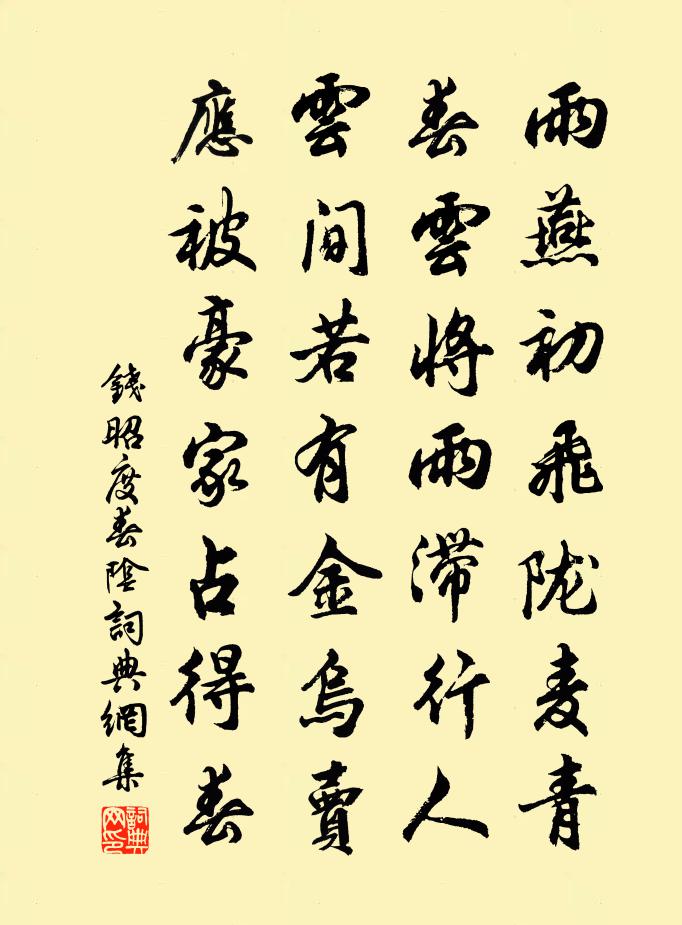 雨燕初飛陇麦青
春雲將雨滯行人
雲間若有金烏賣
應被豪家占得春
錢昭度春陰詞典網集
詞典
网印